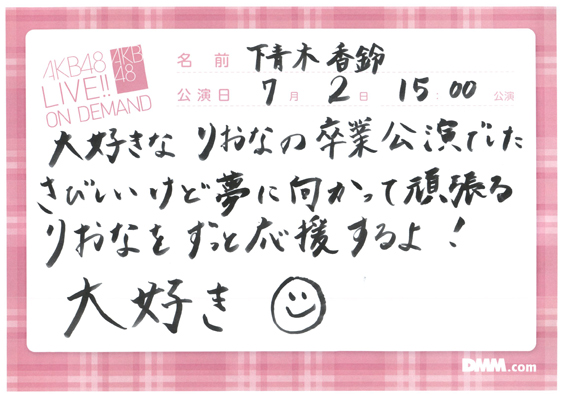 AKB48
LIVE!!
ON DEMAND
AKB
48
名前 下青木香鈴
公演日 7月2日 15:00公演
大好きなりおなの卒業公演でした
さびしいけど夢に向かって頑張る
りおなをずっと応援するよ!
大好き
DMM.com